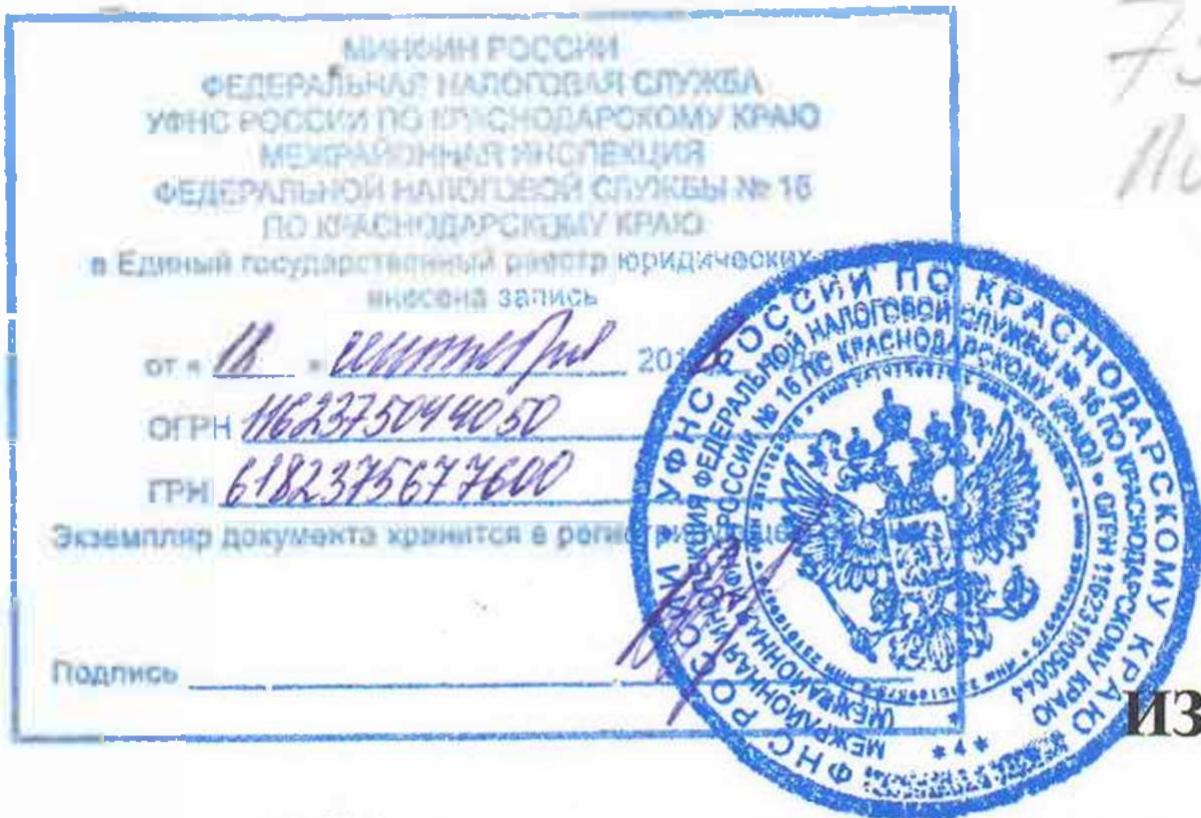 МИНФИН РОССИИ
ФЕДЕРАЛЬНАЯ НАЛОГОВАЯ СЛУЖБА
УФНС РОССИИ ПО КРАСНОДАРСКОМУ КРАЮ
МЕЖРАЙОННАЯ ИНСПЕКЦИЯ
ФЕДЕРАЛЬНОЙ НАЛОГОВОЙ СЛУЖБЫ № 16
ПО КРАСНОДАРСКОМУ КРАЮ
в Единый государственный реестр юридических
внесена запись
от « 18 » сентября 201
ОГРН 1162375044050
ГРН 6182375677600
Экземпляр документа хранится в
Подпись
ФНС РОССИИ * УФНС РОССИИ ПО КРАСНОДАРСКОМУ КРАЮ
МЕЖРАЙОННАЯ ИНСПЕКЦИЯ ФЕДЕРАЛЬНОЙ НАЛОГОВОЙ СЛУЖБЫ № 16 ПО КРАСНОДАРСКОМУ КРАЮ
(МЕЖРАЙОННАЯ ИФНС РОССИИ № 16 ПО КРАСНОДАРСКОМУ КРАЮ) * ОГРН 1162310050044
* 4 *
ИЗ